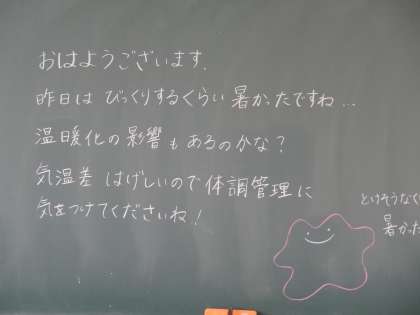 おはようございます.
昨日は びっくりするくらい 暑かったですね...
温暖化の影響もあるのかな?
気温差 はげしいので体調管理に
気をつけてくださいね!
とけそうなく
暑かった